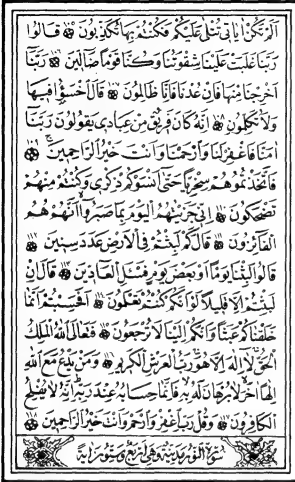 اَلَمْ تَكُنْ اٰيَاتٖى تُتْلٰى عَلَيْكُمْ فَكُنْتُمْ بِهَا تُكَذِّبُونَ ۝ قَالُوا
رَبَّنَا غَلَبَتْ عَلَيْنَا شِقْوَتُنَا وَكُنَّا قَوْمًا ضَالّٖينَ ۝ رَبَّنَٓا
اَخْرِجْنَا مِنْهَا فَاِنْ عُدْنَا فَاِنَّا ظَالِمُونَ ۝ قَالَ اخْسَؤُا فٖيهَا
وَلَا تُكَلِّمُونِ ۝ اِنَّهُ كَانَ فَرٖيقٌ مِنْ عِبَادٖى يَقُولُونَ رَبَّنَٓا
اٰمَنَّا فَاغْفِرْ لَنَا وَارْحَمْنَا وَاَنْتَ خَيْرُ الرَّاحِمٖينَ ۝
فَاتَّخَذْتُمُوهُمْ سِخْرِيًّا حَتّٰٓى اَنْسَوْكُمْ ذِكْرٖى وَكُنْتُمْ مِنْهُمْ
تَضْحَكُونَ ۝ اِنّٖى جَزَيْتُهُمُ الْيَوْمَ بِمَا صَبَرُٓوا اَنَّهُمْ هُمُ
الْفَٓائِزُونَ ۝ قَالَ كَمْ لَبِثْتُمْ فِى الْاَرْضِ عَدَدَ سِنٖينَ ۝
قَالُوا لَبِثْنَا يَوْمًا اَوْ بَعْضَ يَوْمٍ فَسْـَٔلِ الْعَٓادّٖينَ ۝ قَالَ اِنْ
لَبِثْتُمْ اِلَّا قَلٖيلًا لَوْ اَنَّكُمْ كُنْتُمْ تَعْلَمُونَ ۝ اَفَحَسِبْتُمْ اَنَّمَا
خَلَقْنَاكُمْ عَبَثًا وَاَنَّكُمْ اِلَيْنَا لَا تُرْجَعُونَ ۝ فَتَعَالَى اللّٰهُ الْمَلِكُ
الْحَقُّ لَٓا اِلٰهَ اِلَّا هُوَ رَبُّ الْعَرْشِ الْكَرٖيمِ ۝ وَمَنْ يَدْعُ مَعَ اللّٰهِ
اِلٰهًا اٰخَرَ لَا بُرْهَانَ لَهُ بِهٖ فَاِنَّمَا حِسَابُهُ عِنْدَ رَبِّهٖ اِنَّهُ لَا يُفْلِحُ
الْكَافِرُونَ ۝ وَقُلْ رَبِّ اغْفِرْ وَارْحَمْ وَاَنْتَ خَيْرُ الرَّاحِمٖينَ ۝
سُورَةُ النُّورِ مَدَنِيَّةٌ وَهِىَ اَرْبَعٌ وَسِتُّونَ اٰيَةً